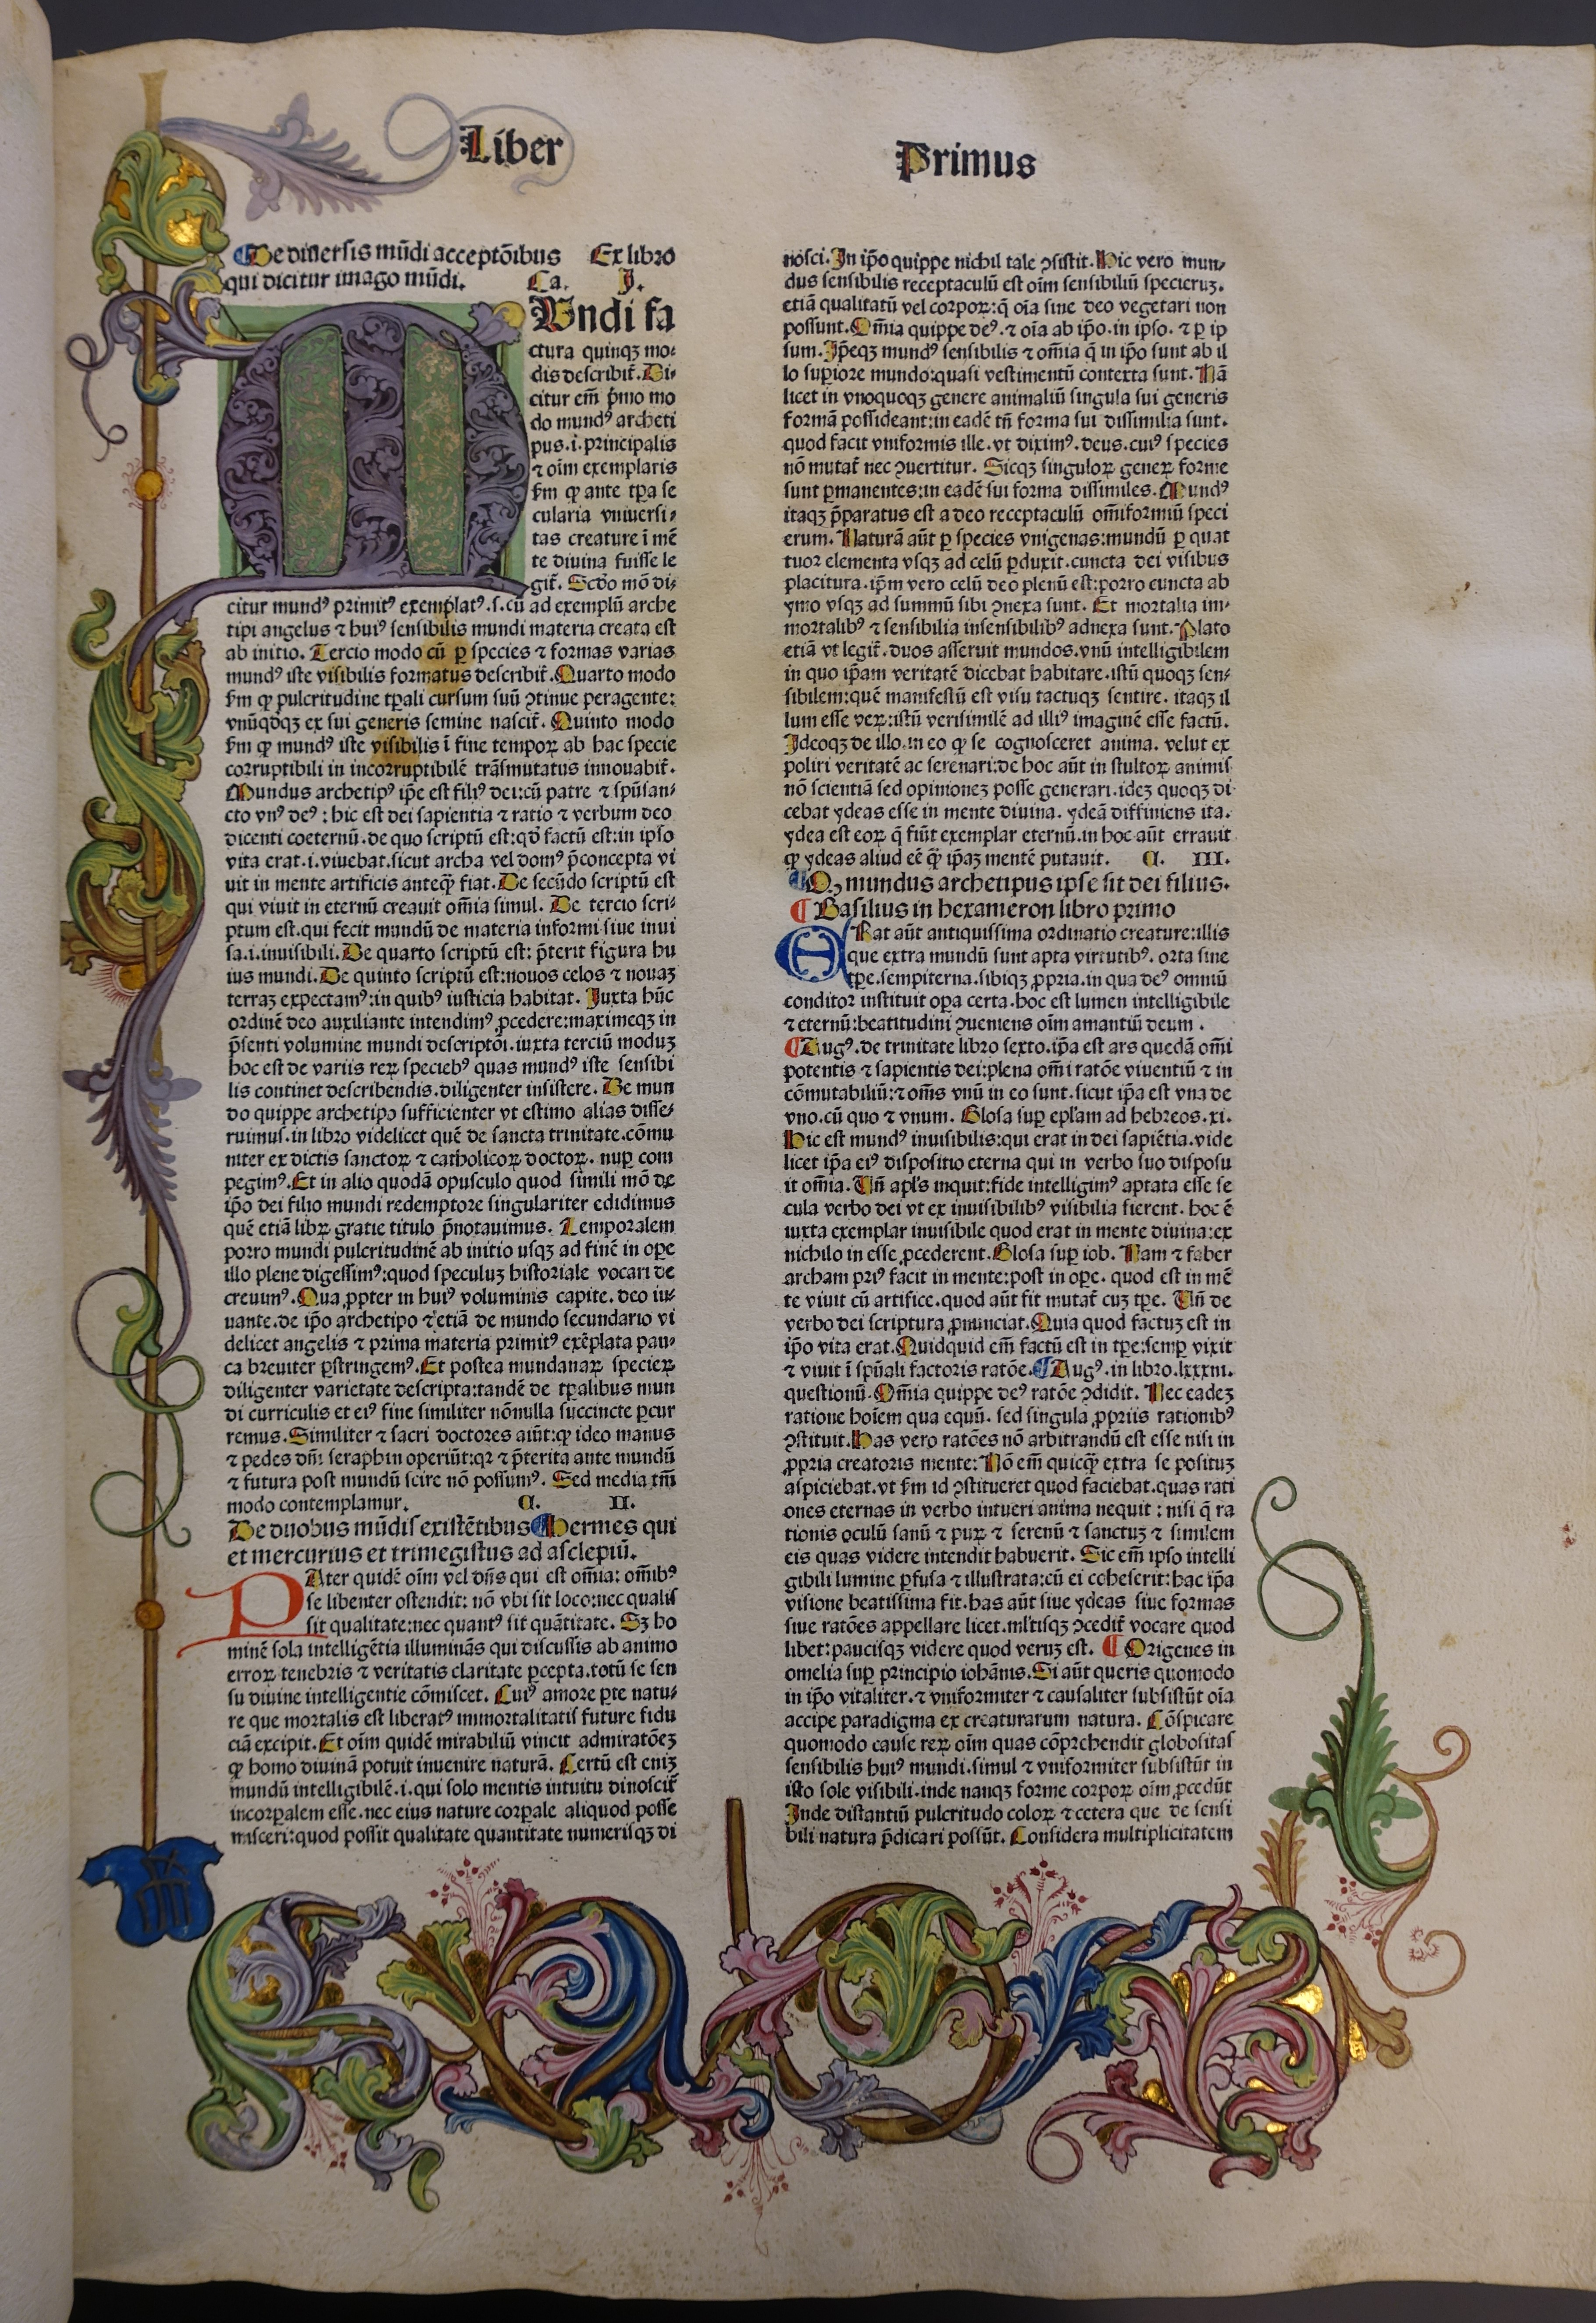 Liber Primus
De diuersis mūdi acceptōibus Ex libro
qui dicitur imago mūdi. Ca. I.
MVndi fa
ctura quinqꝫ mo⸗
dis describit̃. Di⸗
citur em̃ p̃mo mo
do mundꝰ archeti
pus.i.principalis
⁊ oīm exemplaris
ẜm ꝙ ante tꝑa se
cularia vniuersi⸗
tas creature ī mē
te diuina fuisse le
git̃. Scdo mō di⸗
citur mundꝰ primitꝰ exemplatꝰ.s.cū ad exemplū arche
tipi angelus ⁊ huiꝰ sensibilis mundi materia creata est
ab initio. Tercio modo cū ꝑ species ⁊ formas varias
mundꝰ iste visibilis formatus describit̃. Quarto modo
ẜm ꝙ pulcritudine tꝑali cursum suū ꝯtinue peragente:
vnūqdqꝫ ex sui generis semine nascit̃. Quinto modo
ẜm ꝙ mundꝰ iste visibilis ī fine tempoꝝ ab hac specie
corruptibili in incorruptibilē trāsmutatus innouabit̃.
Mundus archetipꝰ ip̄e est filiꝰ dei:cū patre ⁊ spūsan⸗
cto vnꝰ deꝰ : hic est dei sapientia ⁊ ratio ⁊ verbum deo
dicenti coeternū.de quo scriptū est:qd̄ factū est:in ipso
vita erat.i.viuebat.sicut archa vel domꝰ p̄concepta vi
uit in mente artificis anteq̄ꝫ fiat. De secūdo scriptū est
qui viuit in eternū creauit om̄ia simul. De tercio scri⸗
ptum est.qui fecit mundū de materia informi siue inui
sa.i.inuisibili. De quarto scriptū est: p̄terit figura hu
ius mundi. De quinto scriptū est:nouos celos ⁊ nouaꝫ
terraꝫ expectamꝰ:in quibꝰ iusticia habitat. Iuxta hūc
ordinē deo auxiliante intendimꝰ ꝓcedere:maximeqꝫ in
p̄senti volumine mundi descriptōi.iuxta terciū moduꝫ
hoc est de variis reꝝ speciebꝰ quas mundꝰ iste sensibi
lis continet describendis.diligenter insistere. De mun
do quippe archetipo sufficienter vt estimo alias disse⸗
ruimus.in libro videlicet quē de sancta trinitate.cōmu
niter ex dictis sanctoꝝ ⁊ catholicoꝝ doctoꝝ. nuꝑ com
pegimꝰ. Et in alio quodā opusculo quod simili mō de
ip̄o dei filio mundi redemptore singulariter edidimus
quē etiā libꝝ gratie titulo p̄notauimus. Temporalem
porro mundi pulcritudinē ab initio usqꝫ ad finē in oꝑe
illo plene digessimꝰ:quod speculuꝫ historiale vocari de
creuimꝰ. Quaꝓpter in huiꝰ voluminis capite. deo iu⸗
uante.de ip̄o archetipo ⁊ etiā de mundo secundario vi
delicet angelis ⁊ prima materia primitꝰ exēplata pau⸗
ca breuiter ꝑstringemꝰ. Et postea mundanaꝝ specieꝝ
diligenter varietate descripta:tandē de tꝑalibus mun
di curriculis et eiꝰ fine similiter nōnulla succincte ꝑcur
remus. Similiter ⁊ sacri doctores aiūt:ꝙ ideo manus
⁊ pedes dn̄i seraphin operiūt:qꝛ ⁊ p̄terita ante mundū
⁊ futura post mundū scire nō possumꝰ. Sed media tm̄
modo contemplamur. C. II.
De duobus mūdis existētibus Hermes qui
et mercurius et trimegistus ad asclepiū.
PAter quidē oīm vel dn̄s qui est om̄ia: om̄ibꝰ
se libenter ostendit: nō vbi sit loco:nec qualis
sit qualitate:nec quantꝰ sit quātitate. Sꝫ ho
minē sola intelligētia illuminās qui discussis ab animo
erroꝝ tenebris ⁊ veritatis claritate ꝑcepta.totū se sen
su diuine intelligentie cōmiscet. Cuiꝰ amore ꝑte natu⸗
re que mortalis est liberatꝰ immortalitatis future fidu
ciā excipit. Et oīm quidē mirabiliū vincit admiratōeꝫ
ꝙ homo diuinā potuit inuenire naturā. Certū est eniꝫ
mundū intelligibilē.i.qui solo mentis intuitu dinoscit̃
incorꝑalem esse.nec eius nature corꝑale aliquod posse
misceri:quod possit qualitate quantitate numerisqꝫ di
nosci. In ip̄o quippe nichil tale ꝯsistit. Hic vero mun⸗
dus sensibilis receptaculū est oīm sensibiliū specieruꝫ.
etiā qualitatū vel corpoꝝ:q̄ oīa sine deo vegetari non
possunt. Om̄ia quippe deꝰ.⁊ oīa ab ip̄o.in ipso. ⁊ ꝑ ip
sum. Ip̄eqꝫ mundꝰ sensibilis ⁊ om̄ia q̄ in ip̄o sunt ab il
lo suꝑiore mundo:quasi vestimentū contexta sunt. Nā
licet in vnoquoqꝫ genere animaliū singula sui generis
formā possideant:in eadē tn̄ forma sui dissimilia sunt.
quod facit vniformis ille.vt diximꝰ. deus.cuiꝰ species
nō mutat̃ nec ꝯuertitur. Sicqꝫ singuloꝝ geneꝝ forme
sunt ꝑmanentes:in eadē sui forma dissimiles. Mundꝰ
itaqꝫ p̄paratus est a deo receptaculū om̄iformiū speci
erum. Naturā aūt ꝑ species vnigenas:mundū ꝑ quat
tuor elementa vsqꝫ ad celū ꝑduxit.cuncta dei visibus
placitura.ip̄m vero celū deo plenū est:porro cuncta ab
ymo vsqꝫ ad summū sibi ꝯnexa sunt. Et mortalia im⸗
mortalibꝰ ⁊ sensibilia insensibilibꝰ adnexa sunt. Plato
etiā vt legit̃.duos asseruit mundos.vnū intelligibilem
in quo ip̄am veritatē dicebat habitare.istū quoqꝫ sen⸗
sibilem:quē manifestū est visu tactuqꝫ sentire. itaqꝫ il
lum esse veꝝ:istū verisimilē ad illiꝰ imaginē esse factū.
Ideoqꝫ de illo.in eo ꝙ se cognosceret anima. velut ex
poliri veritatē ac serenari:de hoc aūt in stultoꝝ animis
nō scientiā sed opinioneꝫ posse generari.ideꝫ quoqꝫ di⸗
cebat ydeas esse in mente diuina. ydeā diffiniens ita.
ydea est eoꝝ q̄ fiūt exemplar eternū.in hoc aūt errauit
ꝙ ydeas aliud eē q̄ꝫ ip̄aꝫ mentē putauit. C. III.
Qꝫ mundus archetipus ipse sit dei filius.
Basilius in hexameron libro primo
ERat aūt antiquissima ordinatio creature:illis
que extra mundū sunt apta virtutibꝰ. orta sine
tꝑe.sempiterna.sibiqꝫ ꝓpria.in qua deꝰ omniū
conditor instituit oꝑa certa.hoc est lumen intelligibile
⁊ eternū:beatitudini ꝯueniens oīm amantiū deum .
Augꝰ.de trinitate libro sexto.ip̄a est ars quedā om̄i
potentis ⁊ sapientis dei:plena om̄i ratōe viuentiū ⁊ in
cōmutabiliū:⁊ om̄s vnū in eo sunt.sicut ip̄a est vna de
vno.cū quo ⁊ vnum. Glosa suꝑ ep̄l̄am ad hebreos.xi.
Hic est mundꝰ inuisibilis:qui erat in dei sapiētia.vide
licet ip̄a eiꝰ dispositio eterna qui in verbo suo disposu
it om̄ia. Vn̄ apl̄s inquit:fide intelligimꝰ aptata esse se
cula verbo dei vt ex inuisibilibꝰ visibilia fierent. hoc ē
iuxta exemplar inuisibile quod erat in mente diuina:ex
nichilo in esse ꝓcederent. Glosa suꝑ iob. Nam ⁊ faber
archam priꝰ facit in mente:post in oꝑe. quod est in mē
te viuit cū artifice.quod aūt fit mutat̃ cuꝫ tꝑe. Vn̄ de
verbo dei scriptura ꝓnunciat. Quia quod factuꝫ est in
ip̄o vita erat. Quidquid em̄ factū est in tꝑe:semꝑ vixit
⁊ viuit ī spūali factoris ratōe. Augꝰ.in libro.lxxxiii.
questionū. Om̄ia quippe deꝰ ratōe ꝯdidit. Nec eadeꝫ
ratione hoīem qua equū. sed singula ꝓpriis rationibꝰ
ꝯstituit. Has vero ratōes nō arbitrandū est esse nisi in
ꝓpria creatoris mente: Nō em̄ quicq̄ꝫ extra se posituꝫ
aspiciebat.vt ẜm id ꝯstitueret quod faciebat.quas rati
ones eternas in verbo intueri anima nequit : nisi q̄ ra
tionis oculū sanū ⁊ puꝝ ⁊ serenū ⁊ sanctuꝫ ⁊ similem
eis quas videre intendit habuerit. Sic em̄ ipso intelli
gibili lumine ꝑfusa ⁊ illustrata:cū ei coheserit:hac ip̄a
visione beatissima fit.has aūt siue ydeas siue formas
siue ratōes appellare licet.ml̄tisqꝫ ꝯcedit̃ vocare quod
libet:paucisqꝫ videre quod veruꝫ est. Origenes in
omelia suꝑ principio iohānis. Si aūt queris quomodo
in ip̄o vitaliter.⁊ vniformiter ⁊ causaliter subsistūt oīa
accipe paradigma ex creaturarum natura. Cōspicare
quomodo cause reꝝ oīm quas cōprehendit globositas
sensibilis huiꝰ mundi.simul ⁊ vniformiter subsistūt in
isto sole visibili.inde nanqꝫ forme corpoꝝ oīm ꝓcedūt
Inde distantiū pulcritudo coloꝝ ⁊ cetera que de sensi
bili natura p̄dicari possūt. Considera multiplicitatem